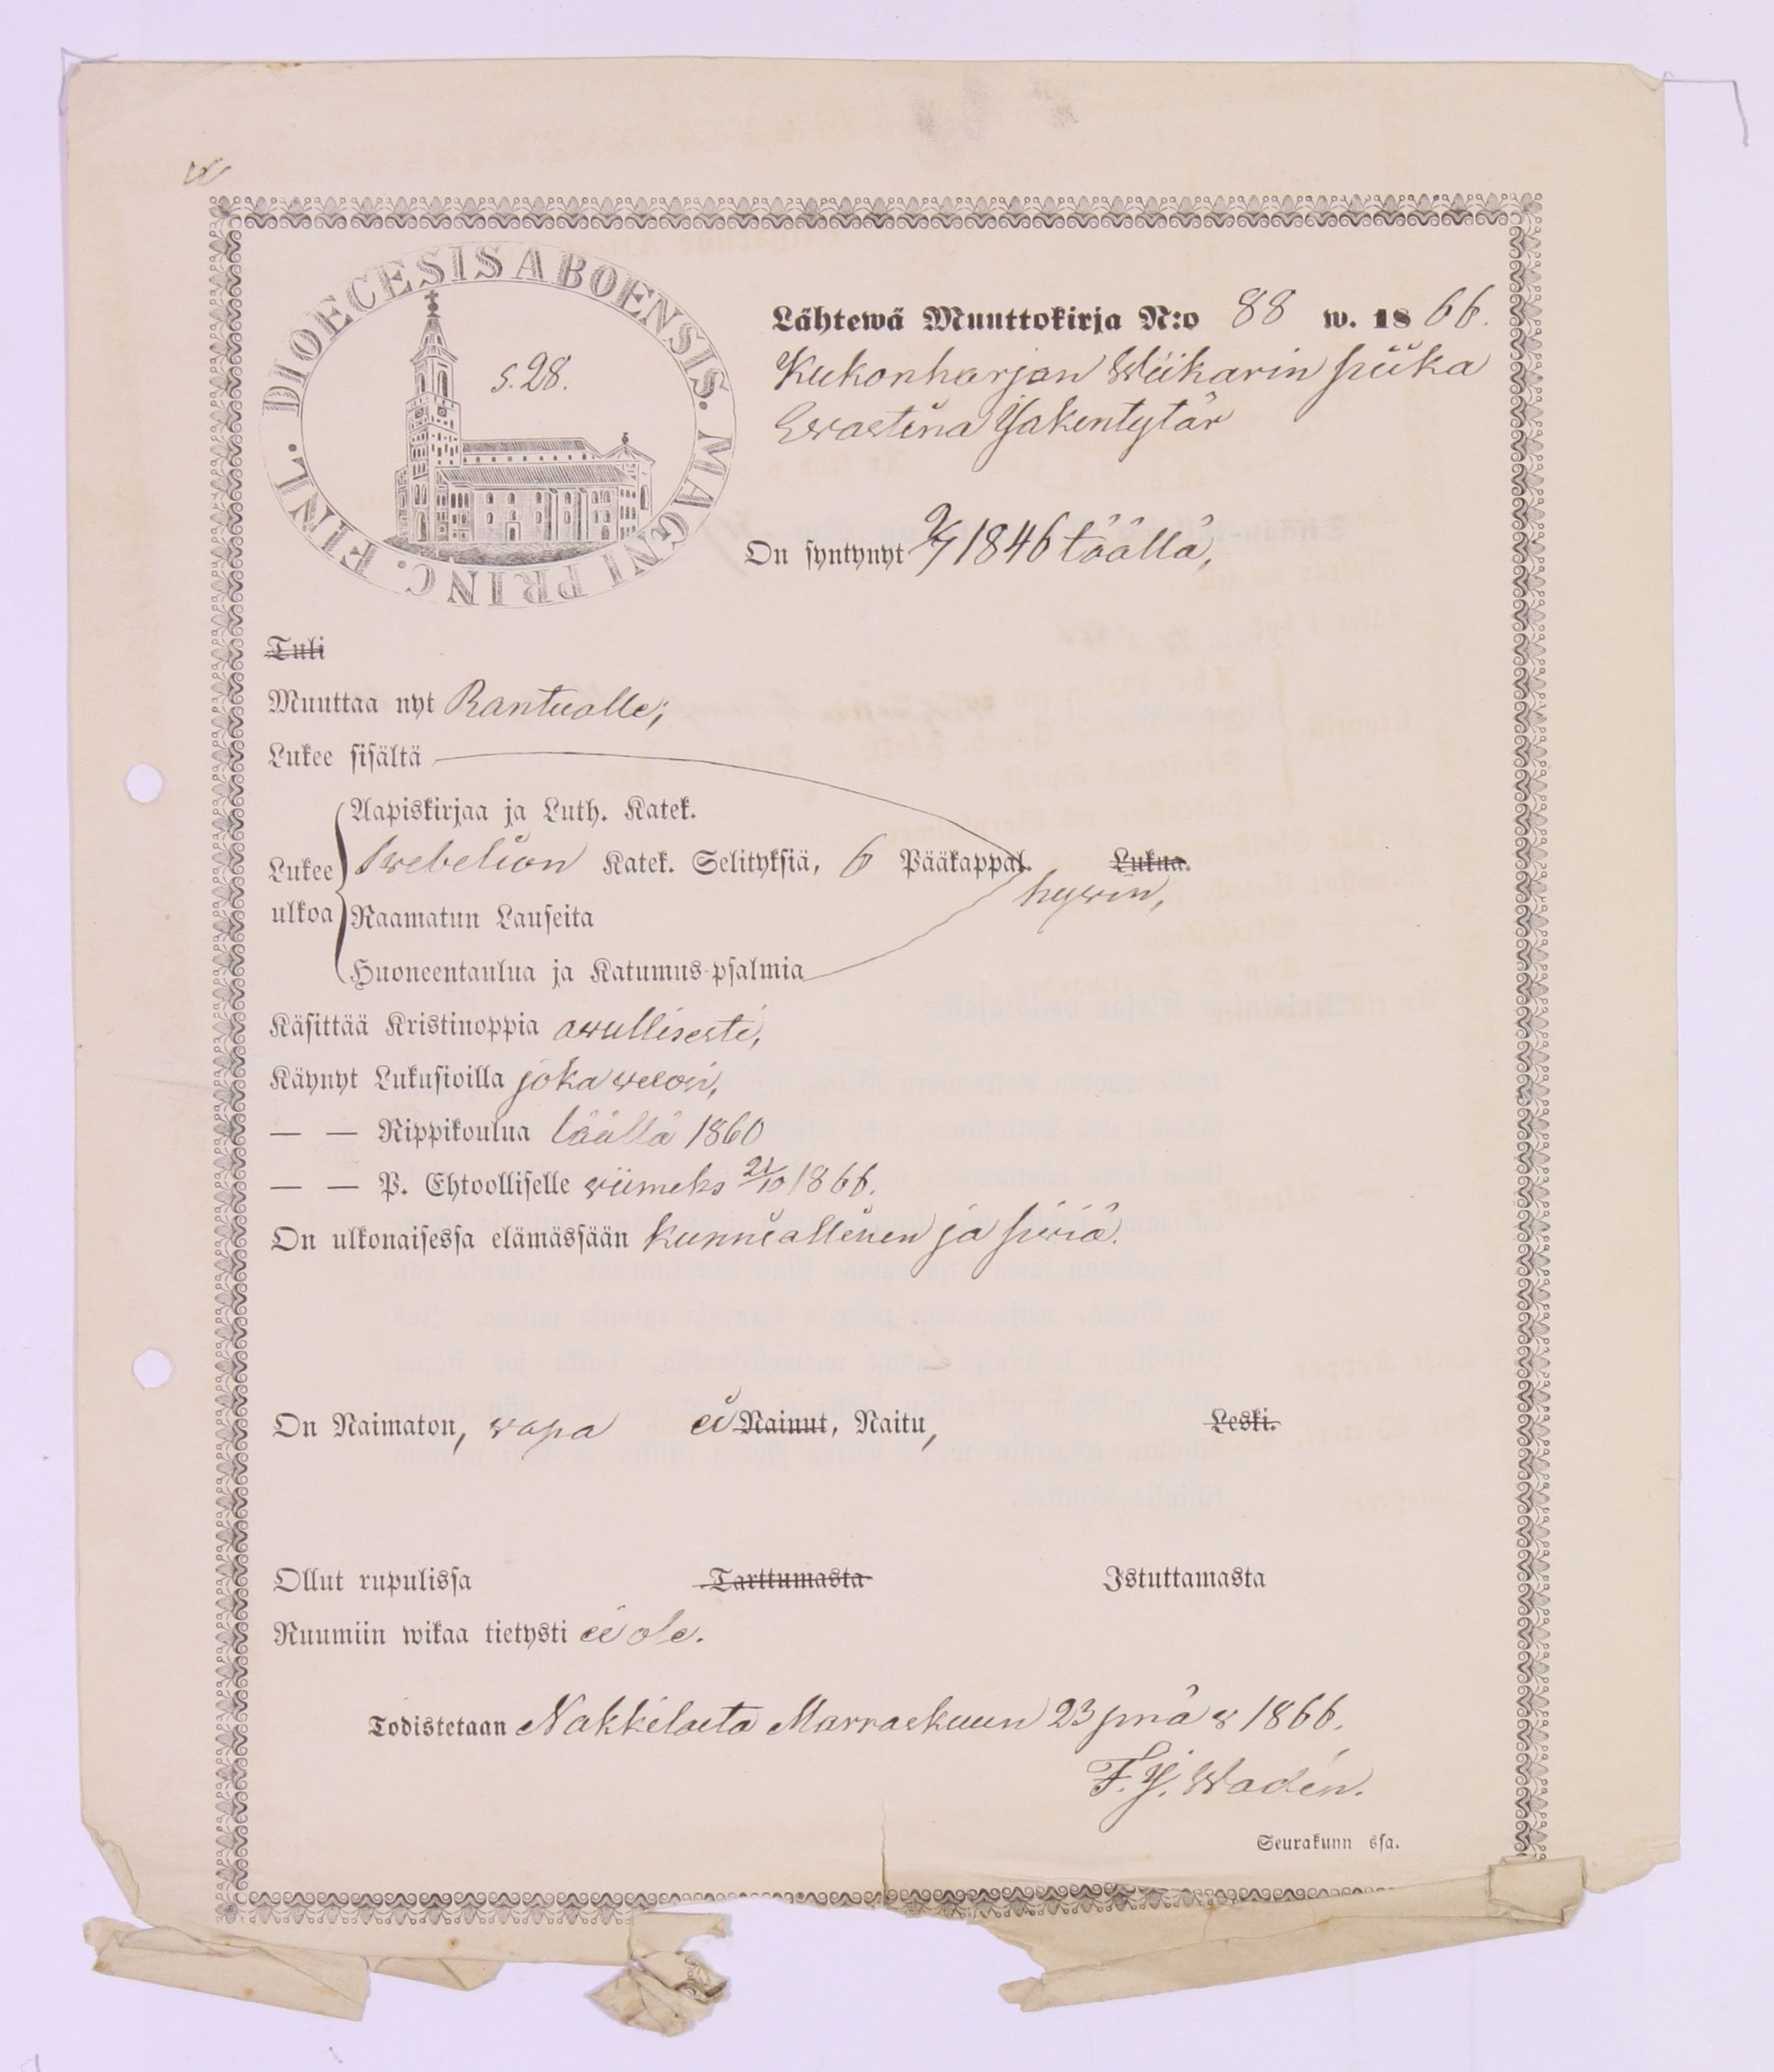 DIOECESIS ABOENSIS. MAGNI PRINC. FINL.
s. 28.
Lähtewä Muuttokirja N:o 88 w. 1866.
Kukonharjan Wiikarin piika
Evastina Jakentytär
On syntynyt 9/7 1846 täällä,
Tuli
Muuttaa nyt Rantualle;
Lukee sisältä
Lukee ulkoa
Aapiskirjaa ja Luth. Katek.
Swebelion Katek. Selityksiä, 6 Pääkappal. Lukua.
hywin,
Raamatun Lauseita
Huoneentaulua ja Katumus-psalmia
Käsittää Kristinoppia awullisesti,
Käynyt Lukusioilla joka wuosi,
— — Rippikoulua täällä 1860
— — P. Ehtoolliselle wiimeks 21/10 1866.
On ulkonaisessa elämässään kunniallinen ja siwiä.
On Naimaton, wapa ei Nainut, Naitu, Leski.
Ollut rupulissa Tarttumasta Istuttamasta
Ruumiin wikaa tietysti ei ole.
Todistetaan Nakkilasta Marraskuun 23 pnä w 1866.
F. J. Wadén.
Seurakunn ssa.